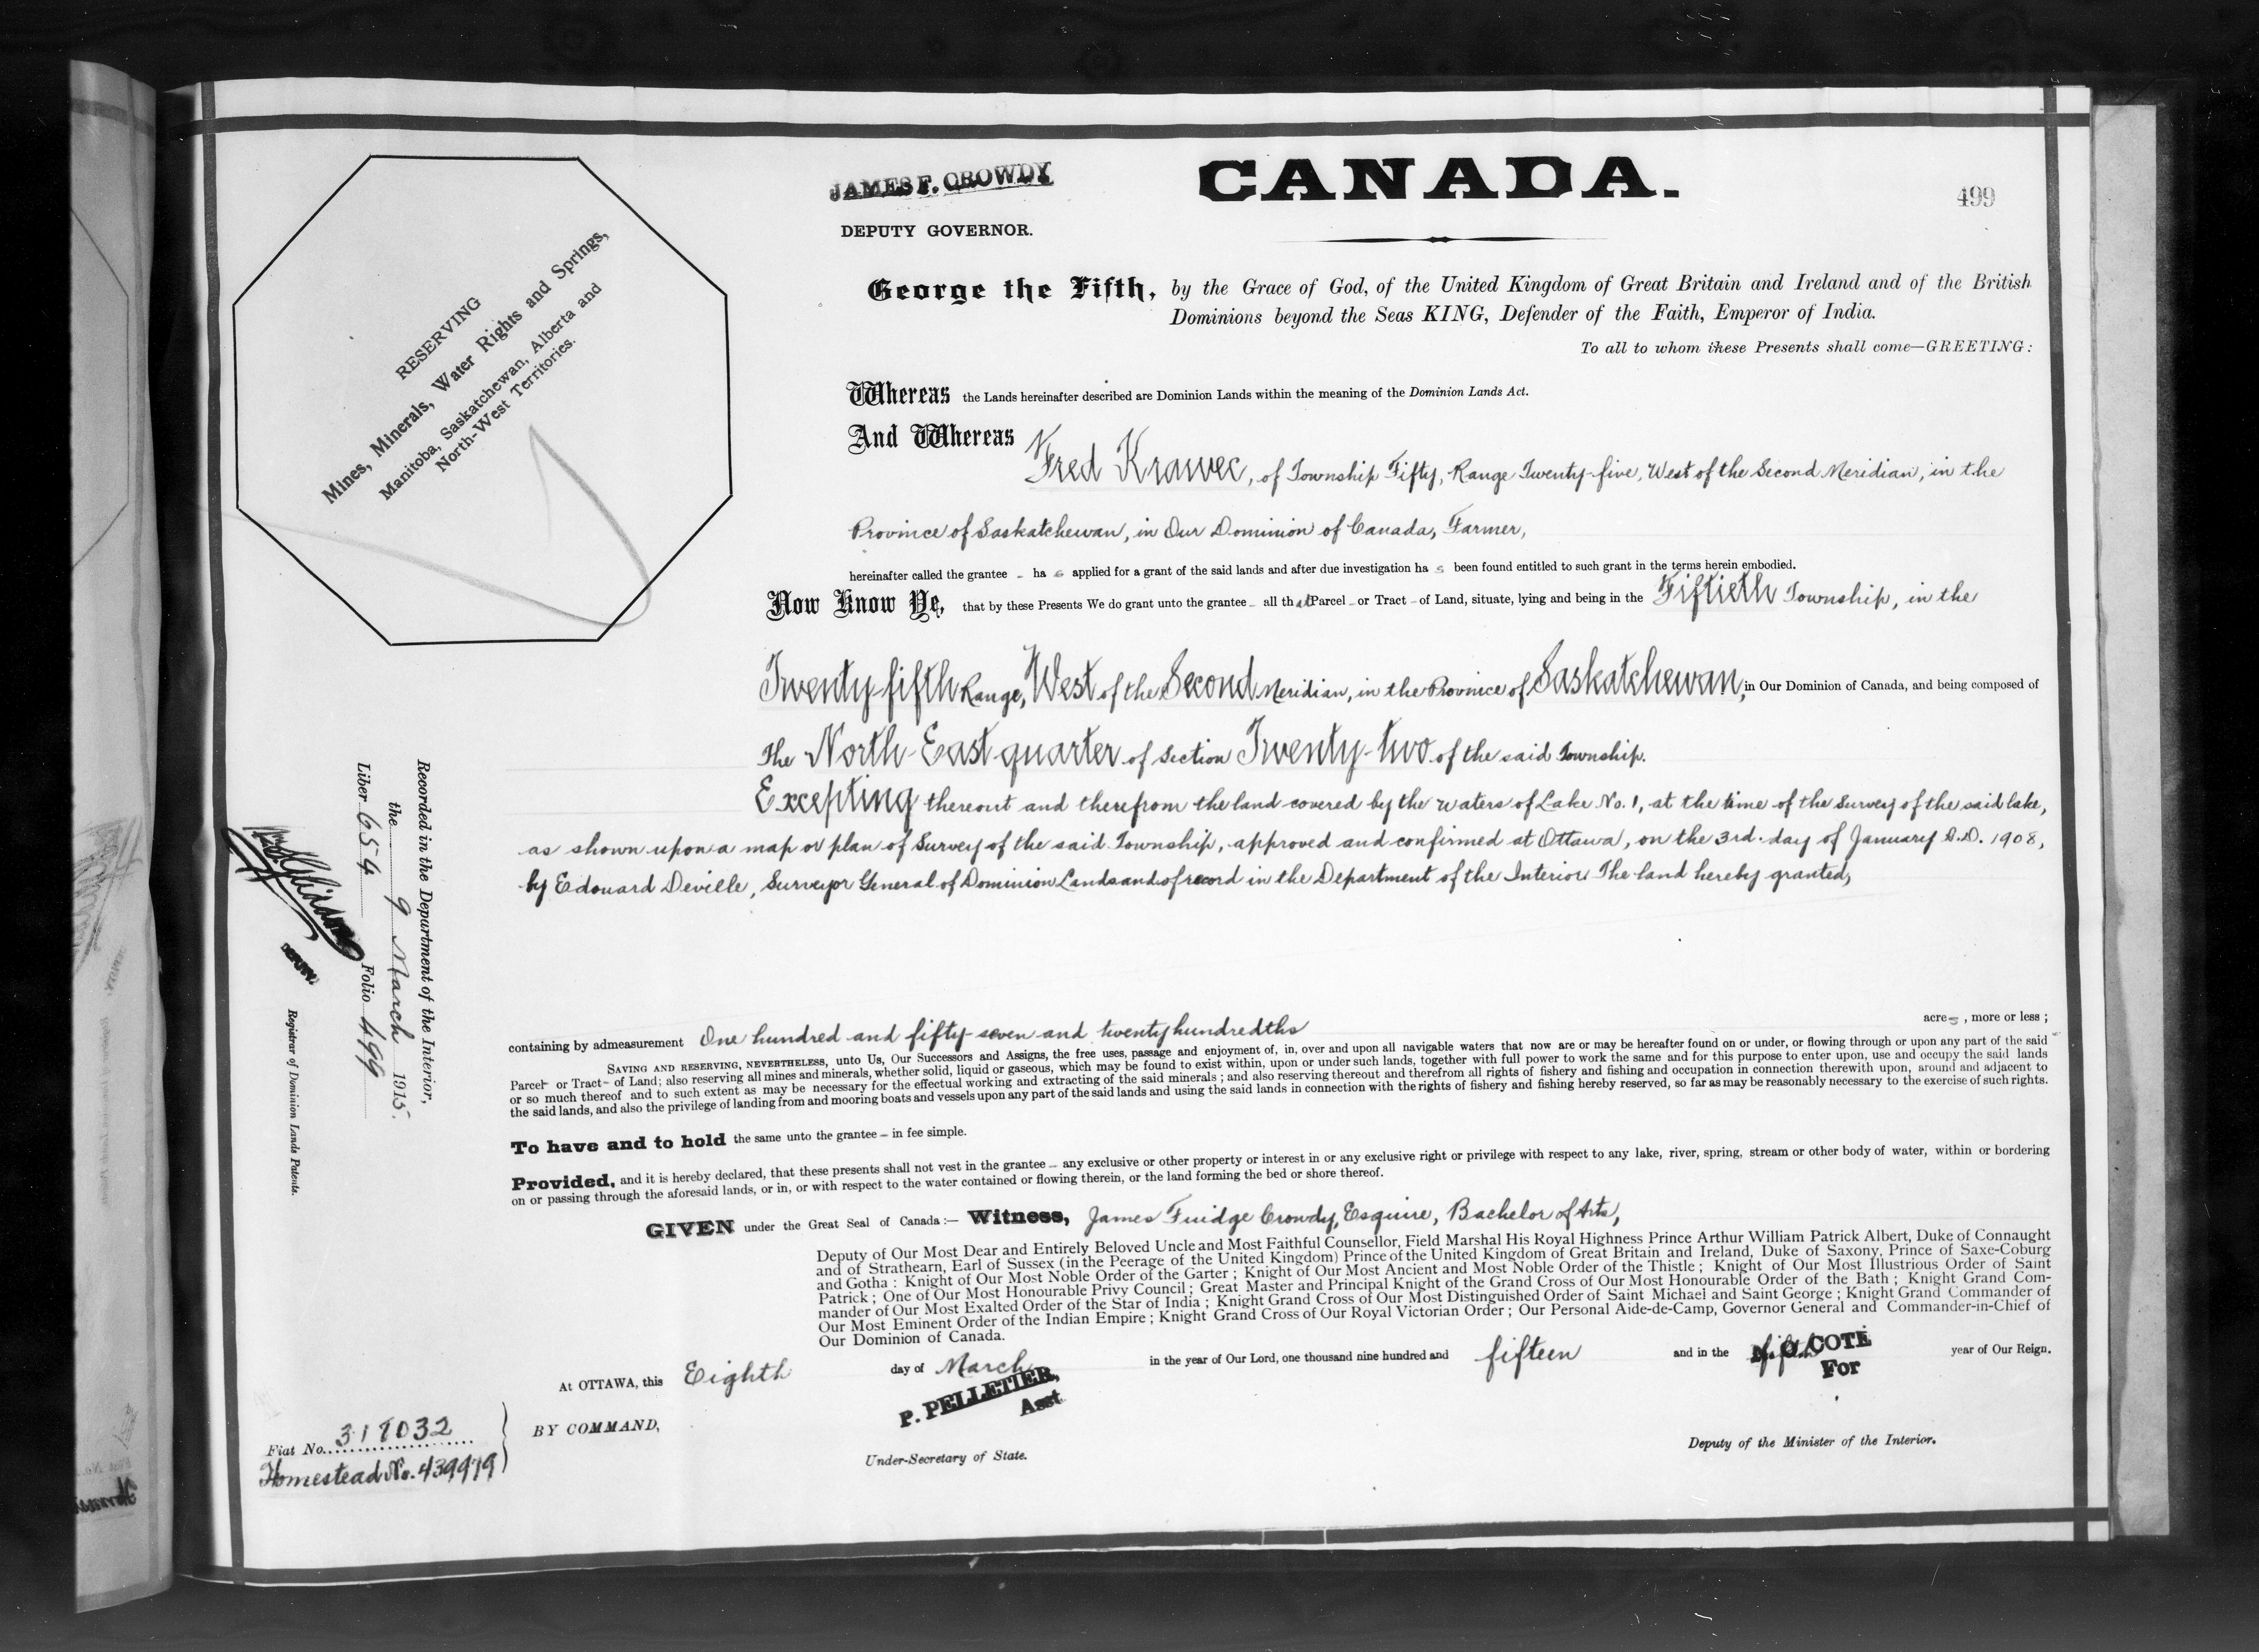 CANADA.
499
JAMES F. CROWDY
DEPUTY GOVERNOR.
RESERVING
Mines, Minerals, Water Rights and Springs,
Manitoba, Saskatchewan, Alberta and
North-West Territories.
George the Fifth, by the Grace of God, of the United Kingdom of Great Britain and Ireland and of the British
Dominions beyond the Seas KING, Defender of the Faith, Emperor of India.
To all to whom these Presents shall come—GREETING:
Whereas the Lands hereinafter described are Dominion Lands within the meaning of the Dominion Lands Act.
And Whereas Fred Krawec, of Township Fifty, Range Twenty-five, West of the Second Meridian, in the
Province of Saskatchewan, in Our Dominion of Canada, Farmer,
hereinafter called the grantee - ha s applied for a grant of the said lands and after due investigation ha s been found entitled to such grant in the terms herein embodied.
Now Know Ye, that by these Presents We do grant unto the grantee - all that Parcel - or Tract - of Land, situate, lying and being in the Fiftieth Township, in the
Twenty-fifth Range, West of the Second Meridian, in the Province of Saskatchewan, in Our Dominion of Canada, and being composed of
The North-East quarter of Section Twenty-two of the said Township.
Excepting thereout and therefrom the land covered by the waters of Lake No. 1, at the time of the Survey of the said lake,
as shown upon a map or plan of Survey of the said Township, approved and confirmed at Ottawa, on the 3rd. day of January A.D. 1908,
by Edouard Deville, Surveyor General of Dominion Lands and of record in the Department of the Interior. The land hereby granted,
containing by admeasurement One hundred and fifty-seven and twenty hundredths acres, more or less;
SAVING AND RESERVING, NEVERTHELESS, unto Us, Our Successors and Assigns, the free uses, passage and enjoyment of, in, over and upon all navigable waters that now are or may be hereafter found on or under, or flowing through or upon any part of the said
Parcel- or Tract- of Land; also reserving all mines and minerals, whether solid, liquid or gaseous, which may be found to exist within, upon or under such lands, together with full power to work the same and for this purpose to enter upon, use and occupy the said lands
or so much thereof and to such extent as may be necessary for the effectual working and extracting of the said minerals; and also reserving thereout and therefrom all rights of fishery and fishing and occupation in connection therewith upon, around and adjacent to
the said lands, and also the privilege of landing from and mooring boats and vessels upon any part of the said lands and using the said lands in connection with the rights of fishery and fishing hereby reserved, so far as may be reasonably necessary to the exercise of such rights.
To have and to hold the same unto the grantee - in fee simple.
Provided, and it is hereby declared, that these presents shall not vest in the grantee - any exclusive or other property or interest in or any exclusive right or privilege with respect to any lake, river, spring, stream or other body of water, within or bordering
on or passing through the aforesaid lands, or in, or with respect to the water contained or flowing therein, or the land forming the bed or shore thereof.
GIVEN under the Great Seal of Canada:— Witness, James Fuidge Crowdy, Esquire, Bachelor of Arts,
Deputy of Our Most Dear and Entirely Beloved Uncle and Most Faithful Counsellor, Field Marshal His Royal Highness Prince Arthur William Patrick Albert, Duke of Connaught
and of Strathearn, Earl of Sussex (in the Peerage of the United Kingdom) Prince of the United Kingdom of Great Britain and Ireland, Duke of Saxony, Prince of Saxe-Coburg
and Gotha: Knight of Our Most Noble Order of the Garter; Knight of Our Most Ancient and Most Noble Order of the Thistle; Knight of Our Most Illustrious Order of Saint
Patrick; One of Our Most Honourable Privy Council; Great Master and Principal Knight of the Grand Cross of Our Most Honourable Order of the Bath; Knight Grand Com-
mander of Our Most Exalted Order of the Star of India; Knight Grand Cross of Our Most Distinguished Order of Saint Michael and Saint George; Knight Grand Commander of
Our Most Eminent Order of the Indian Empire; Knight Grand Cross of Our Royal Victorian Order; Our Personal Aide-de-Camp, Governor General and Commander-in-Chief of
Our Dominion of Canada.
At OTTAWA, this Eighth day of March in the year of Our Lord, one thousand nine hundred and fifteen and in the fifth year of Our Reign.
N. O. COTE
For
P. PELLETIER,
Asst
BY COMMAND,
Under-Secretary of State.
Deputy of the Minister of the Interior.
Fiat No. 317032
Homestead No. 439979
Recorded in the Department of the Interior,
the 9 March 1915.
Liber 654 Folio 499
DEPUTY
Registrar of Dominion Lands Patents.